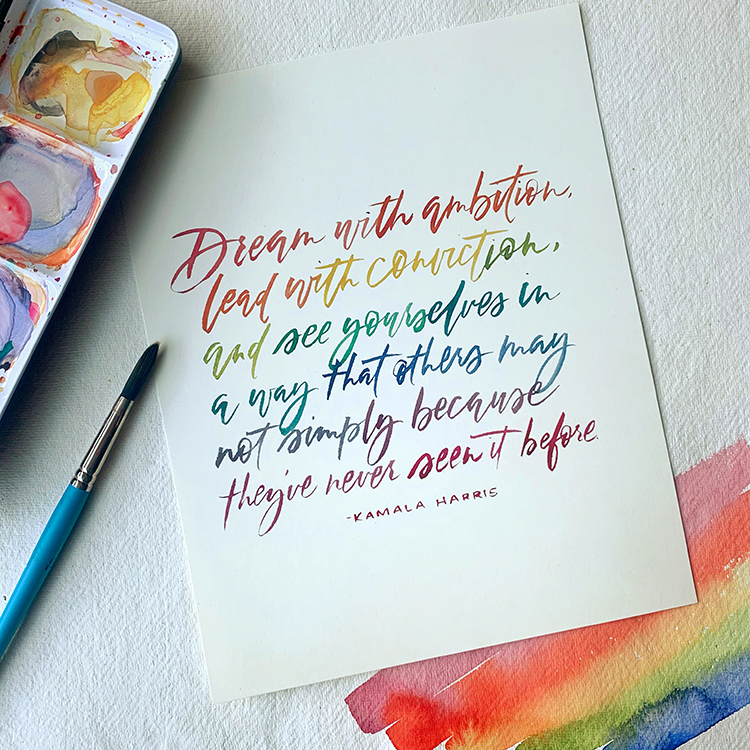 Dream with ambition,
lead with conviction,
and see yourselves in
a way that others may
not simply because
they've never seen it before.
-KAMALA HARRIS